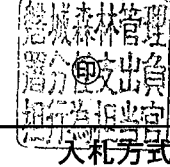 磐城森林管理
署分㊞支出負
担行為担当官
入札方式